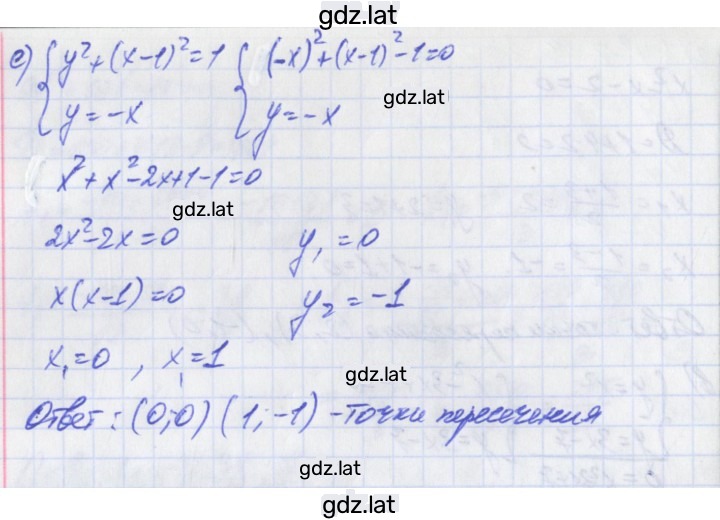 gdz.lat
e) { y² + (x-1)² = 1 { (-x)² + (x-1)² - 1 = 0
gdz.lat
y = -x y = -x
x² + x² - 2x + 1 - 1 = 0
gdz.lat
2x² - 2x = 0 y₁ = 0
x(x-1) = 0 y₂ = -1
x₁ = 0 , x₁ = 1
gdz.lat
Ответ: (0;0) (1;-1) - точки пересечения
gdz.lat
gdz.lat